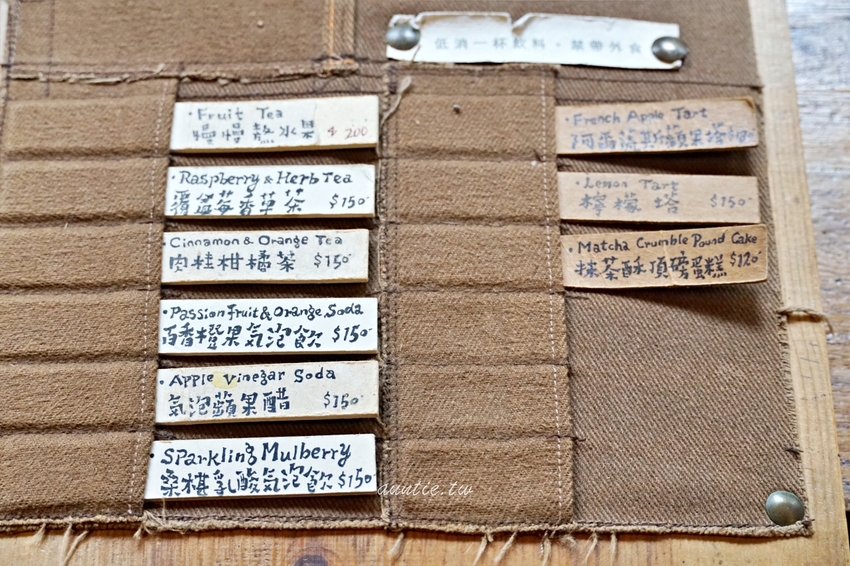 低消一杯飲料。禁帶外食
·Fruit Tea
慢慢熬水果 $200
·Raspberry & Herb Tea
覆盆莓香草茶 $150
·Cinnamon & Orange Tea
肉桂柑橘茶 $150
·Passion fruit & Orange Soda
百香橙果氣泡飲 $150
·Apple Vinegar Soda
氣泡蘋果醋 $150
·Sparkling Mulberry
桑椹乳酸氣泡飲 $150
·French Apple Tart
阿爾薩斯蘋果塔
·Lemon Tart
檸檬塔 $150
·Matcha Crumble Pound Cake
抹茶酥頂磅蛋糕 $120
auntie.tw